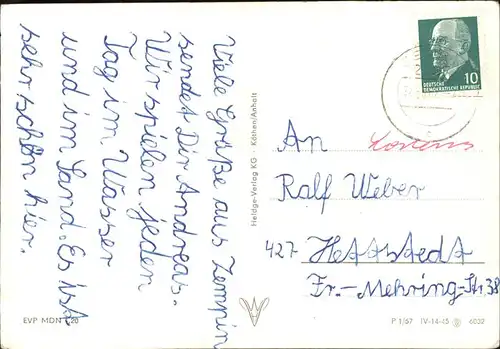 Viele Grüße aus Zempin
sendet Dir Andreas.
Wir spielen jeden
Tag im Wasser
und im Sand. Es ist
sehr schön hier.
Heldge-Verlag KG - Köthen/Anhalt
10
DEUTSCHE
DEMOKRATISCHE REPUBLIK
An
Ralf Weber
427 Hettstedt
Fr.-Mehring-Str 38
EVP MDN 20
P 1/67 IV-14-45 6032